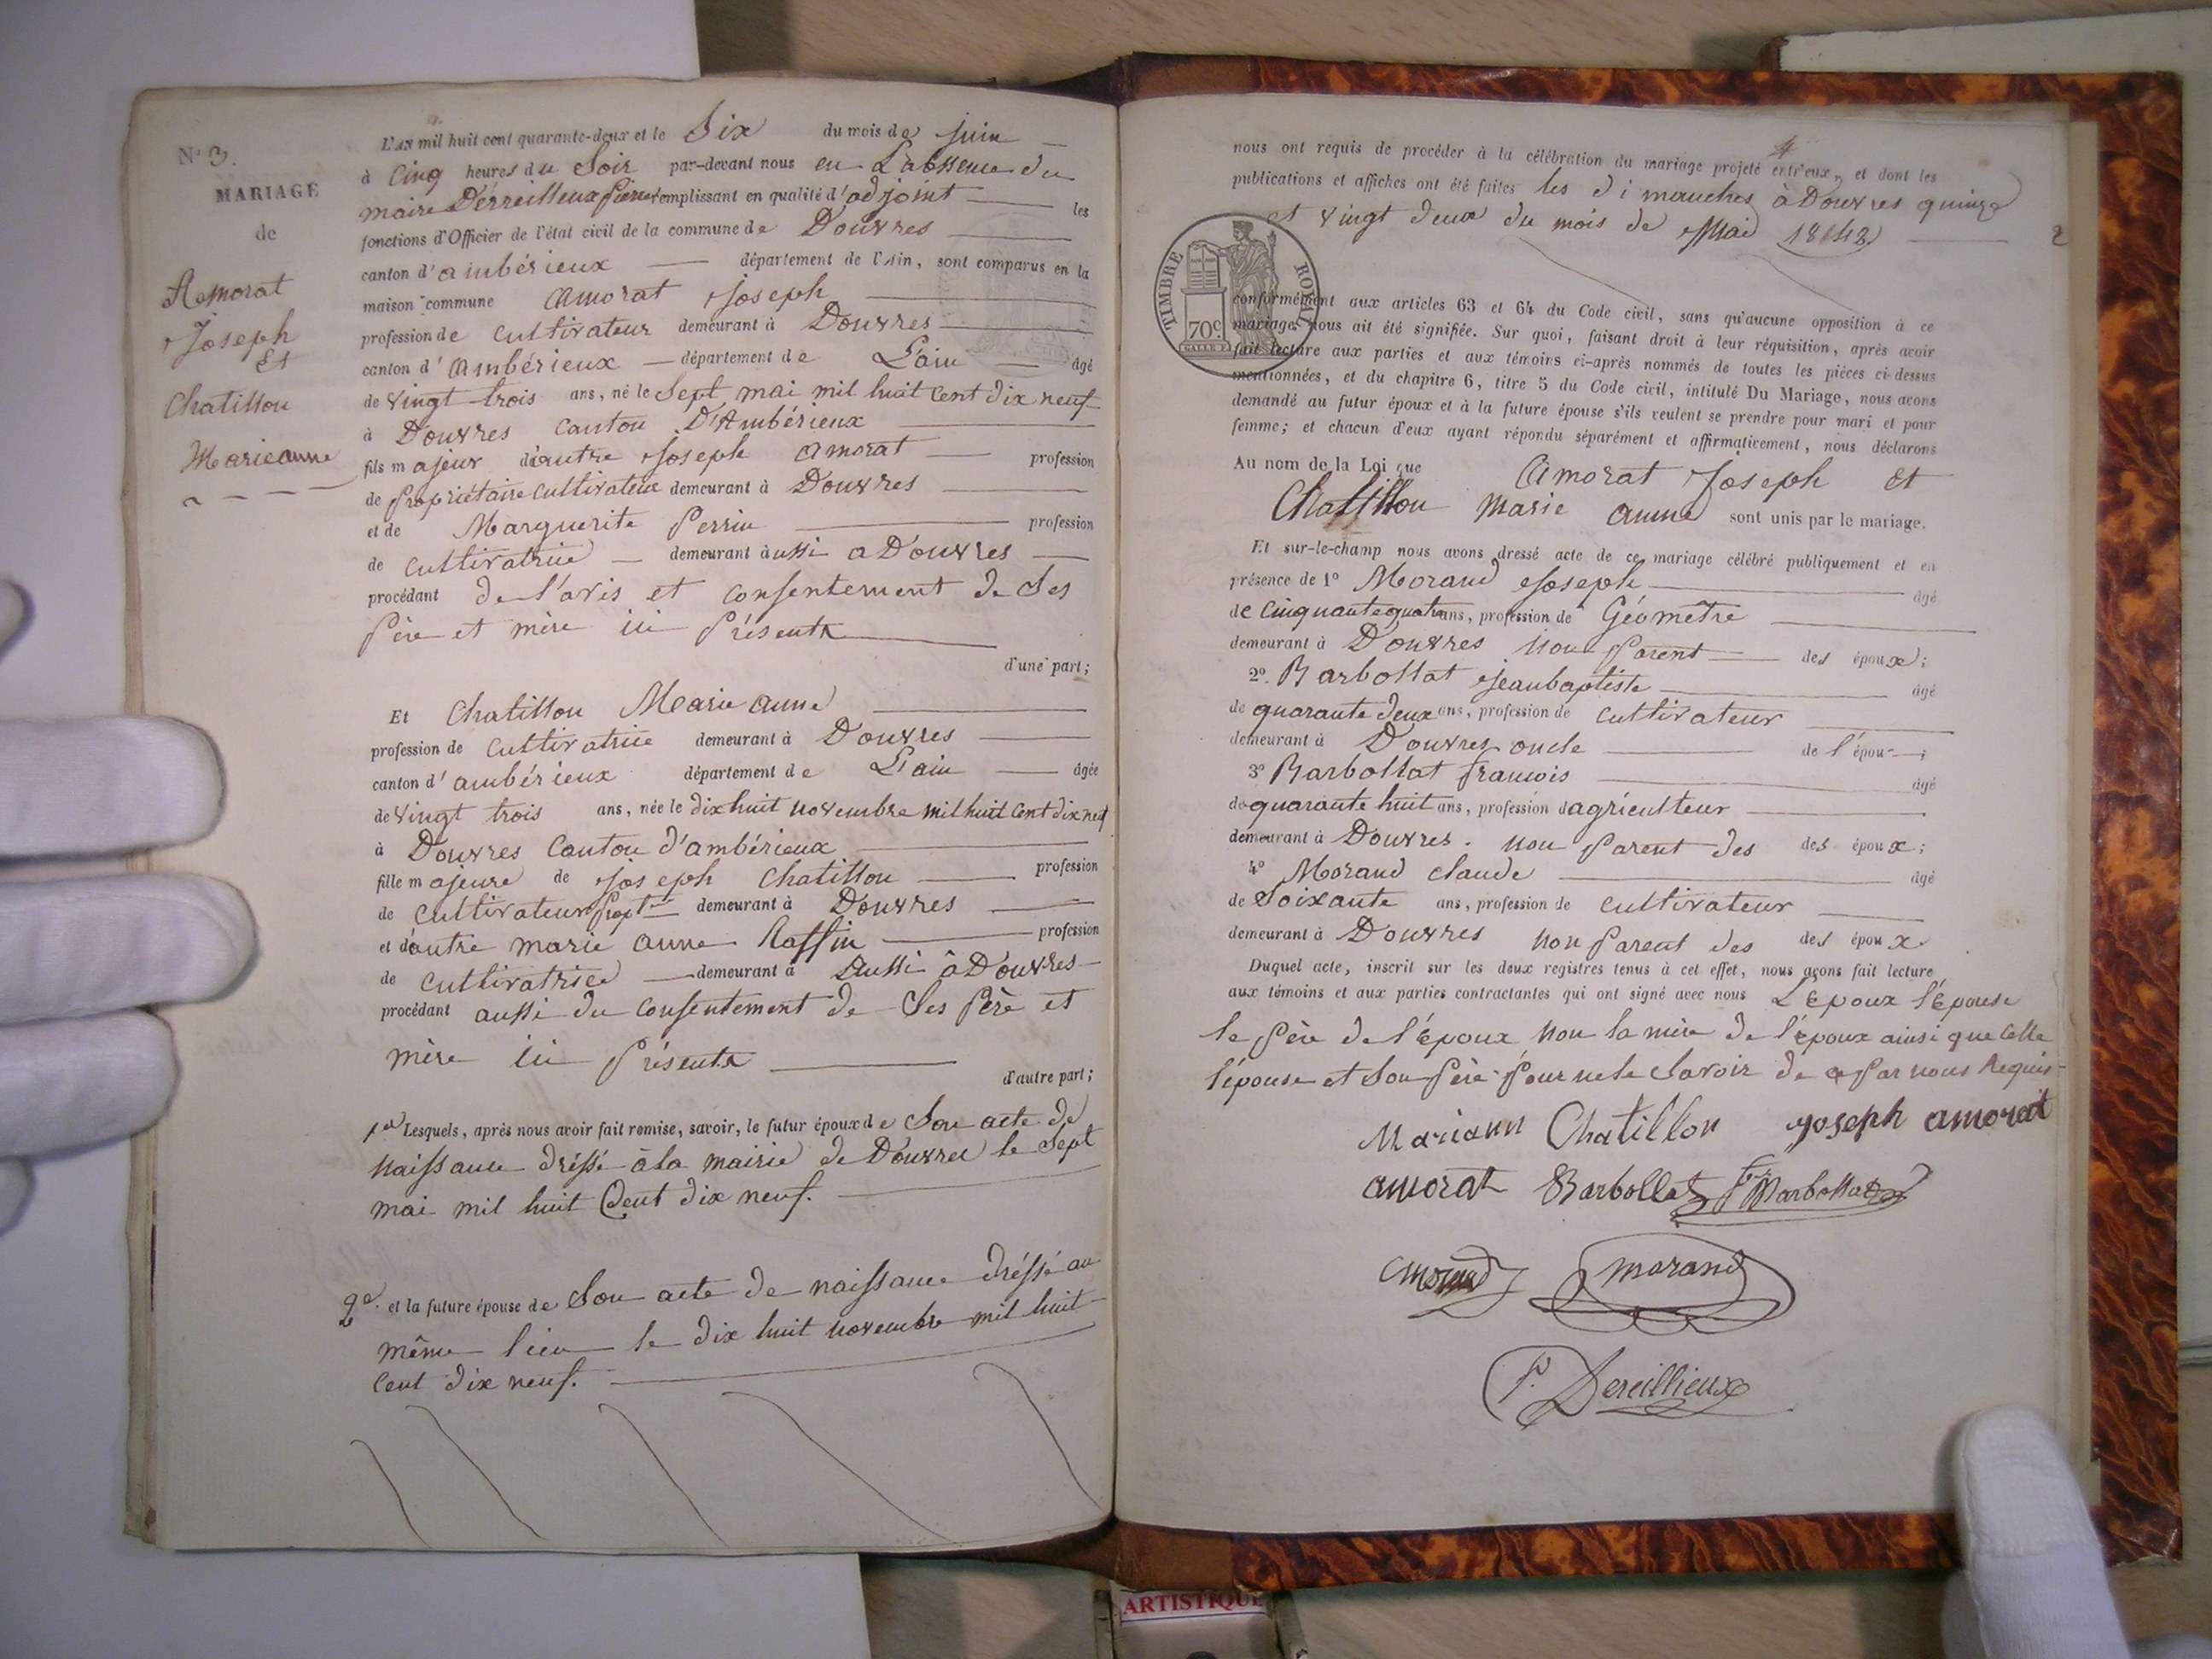 N° 3.
MARIAGE
de
Amorat
Joseph
Et
Chatillon
Marieanne
L'AN mil huit cent quarante-deux et le Six du mois de juin
à Cinq heures du Soir par-devant nous en L'abssence du
maire Dérreilleux Pierre remplissant en qualité d'adjoint les
fonctions d'Officier de l'état civil de la commune de Douvres
canton d'ambérieux département de l'Ain, sont comparus en la
maison commune Amorat Joseph
profession de cultivateur demeurant à Douvres
canton d'Ambérieux département de L'ain âgé
de vingt trois ans, né le Sept mai mil huit cent dix neuf
à Douvres Canton D'Ambérieux
fils majeur d'autre Joseph Amorat profession
de Propriétaire cultivateur demeurant à Douvres
et de Marguerite Perrin profession
de cultivatrice demeurant à ussi a Douvres
procédant de l'avis et consentement de Ses
Père et mère ici Présents
d'une part;
Et Chatillon Marie anne
profession de cultivatrice demeurant à Douvres
canton d'ambérieux département de L'ain âgée
de vingt trois ans, née le dixhuit novembre mil huit cent dix neuf
à Douvres Canton d'ambérieux
fille majeure de Joseph Chatillon profession
de cultivateur Propt.re demeurant à Douvres
et d'autre marie anne Raffin profession
de cultivatrice demeurant à Aussi à Douvres
procédant aussi du consentement de Ses Père et
mère ici Présents
d'autre part;
1° Lesquels, après nous avoir fait remise, savoir, le futur époux de Son acte de
naissance dréssé à la mairie de Douvres le Sept
mai mil huit Cent dix neuf.
2° et la future épouse de Son acte de naissance dréssé au
même lieu le dix huit novembre mil huit
Cent dix neuf.
nous ont requis de procéder à la célébration du mariage projeté entr'eux, et dont les
publications et affiches ont été faites les dimanches à Douvres quinze
et vingt deux du mois de Mai 1842
2
TIMBRE ROYAL
70c
conformément aux articles 63 et 64 du Code civil, sans qu'aucune opposition à ce
mariage nous ait été signifiée. Sur quoi, faisant droit à leur réquisition, après avoir
fait lecture aux parties et aux témoins ci-après nommés de toutes les pièces ci-dessus
mentionnées, et du chapitre 6, titre 5 du Code civil, intitulé Du Mariage, nous avons
demandé au futur époux et à la future épouse s'ils veulent se prendre pour mari et pour
femme; et chacun d'eux ayant répondu séparément et affirmativement, nous déclarons
Au nom de la Loi que Amorat Joseph et
Chatillon Marie anne sont unis par le mariage.
Et sur-le-champ nous avons dressé acte de ce mariage célébré publiquement et en
présence de 1° Morand Joseph âgé
de cinquante quatre ans, profession de Géomètre
demeurant à Douvres non Parent des époux;
2°. Barbollat Jeanbaptiste âgé
de quarante deux ans, profession de cultivateur
demeurant à Douvres oncle de l'épou- ;
3° Barbollat francois âgé
de quarante huit ans, profession d'agriculteur
demeurant à Douvres. non Parent des des époux;
4° Morand claude âgé
de Soixante ans, profession de cultivateur
demeurant à Douvres non Parent des des époux
Duquel acte, inscrit sur les deux registres tenus à cet effet, nous avons fait lecture
aux témoins et aux parties contractantes qui ont signé avec nous L'époux l'épouse
le Père de l'époux non la mère de l'époux ainsi que Celle
l'épouse et Son Père Pour ne le Savoir de ce Par nous Requis
Mariann Chatillon joseph amorat
amorat Barbollat F Barbollat
Morand Morand
P. Dereillieux
ARTISTIQUE